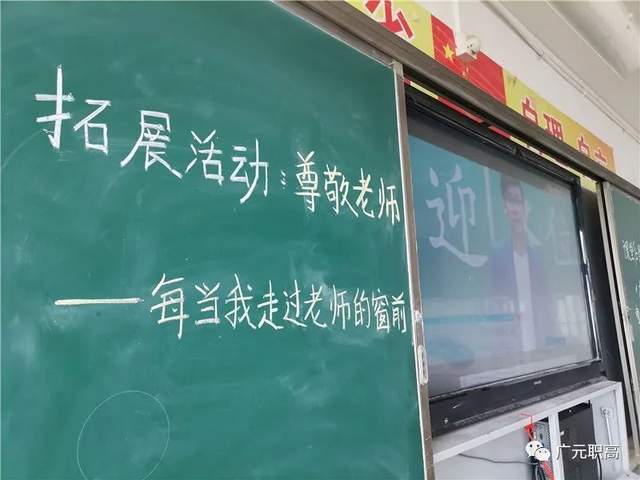 拓展活动：尊敬老师
——每当我走过老师的窗前
公
自理 自立
迎
广元职高